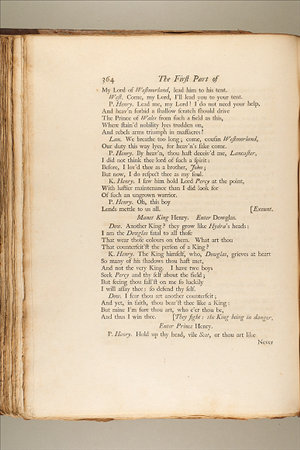 364 The First Part of
My Lord of Westmorland, lead him to his tent.
West. Come, my Lord, I'll lead you to your tent.
P. Henry. Lead me, my Lord! I do not need your help,
And heav'n forbid a shallow scratch should drive
The Prince of Wales from such a field as this,
Where stain'd nobility lyes trodden on,
And rebels arms triumph in massacres!
Lan. We breathe too long; come, cousin Westmorland,
Our duty this way lyes, for heav'n's sake come.
P. Henry. By heav'n, thou hast deceiv'd me, Lancaster,
I did not think thee lord of such a spirit:
Before, I lov'd thee as a brother, John;
But now, I do respect thee as my soul.
K. Henry. I saw him hold Lord Percy at the point,
With lustier maintenance than I did look for
Of such an ungrown warrior.
P. Henry. Oh, this boy
Lends mettle to us all. [Exeunt.
Manet King Henry. Enter Dowglas.
Dow. Another King? they grow like Hydra's heads:
I am the Dowglas fatal to all those
That wear those colours on them. What art thou
That counterfeit'st the person of a King?
K. Henry. The King himself, who, Dowglas, grieves at heart
So many of his shadows thou hast met,
And not the very King. I have two boys
Seek Percy and thy self about the field;
But seeing thou fall'st on me so luckily
I will assay thee: so defend thy self.
Dow. I fear thou art another counterfeit;
And yet, in faith, thou bear'st thee like a King:
But mine I'm sure thou art, who e'er thou be,
And thus I win thee. [They fight: the King being in danger,
Enter Prince Henry.
P. Henry. Hold up thy head, vile Scot, or thou art like
Never